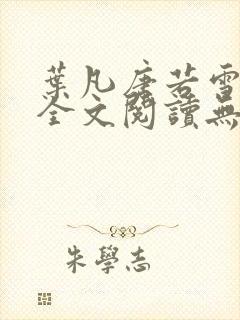 葉凡唐若雪
全文閱讀無
朱學志